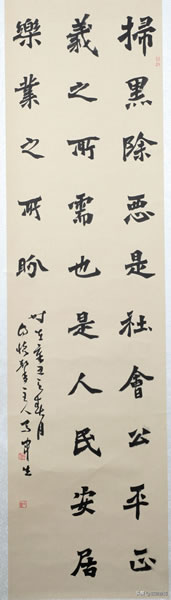 掃黑除惡是社會公平正
義之所需也是人民安居
樂業之所盼
時在辛丑之春月
主人